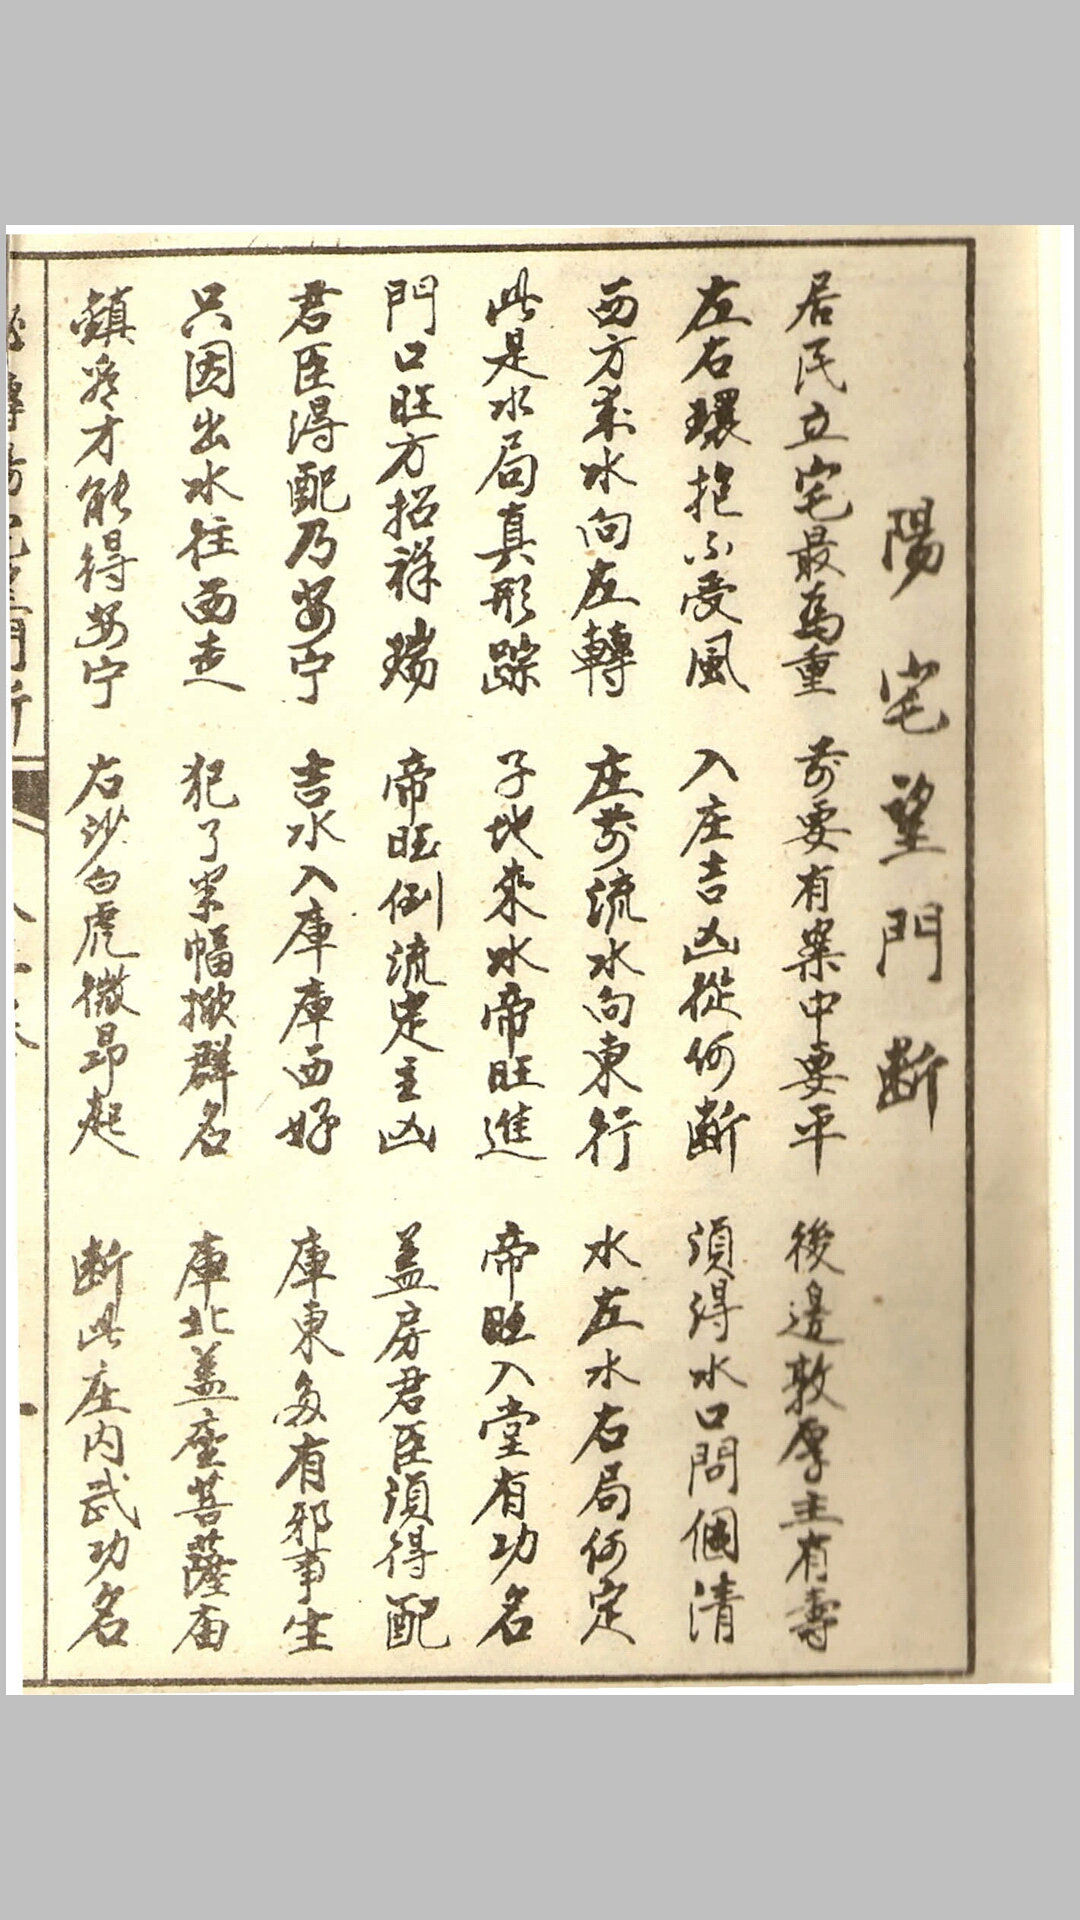 陽宅望門断
居民立宅最為重 前要有案中要平 後邊敦厚主有壽
左右環抱不受風 入庄吉凶從何断 須得水口問個清
西方來水向左轉 庄前流水向東行 水左水右局何定
此是水局真形踪 子地來水帝旺進 帝旺入堂有功名
門口旺方招祥瑞 帝旺倒流定主凶 盖房君臣須得配
君臣得配乃安宁 吉水入庫庫西好 庫東多有邪事生
只因出水往西走 犯了 幅掀群名 庫北盖座菩薩庙
鎮 才能得安宁 右沙白虎微昂起 断此庄内武功名